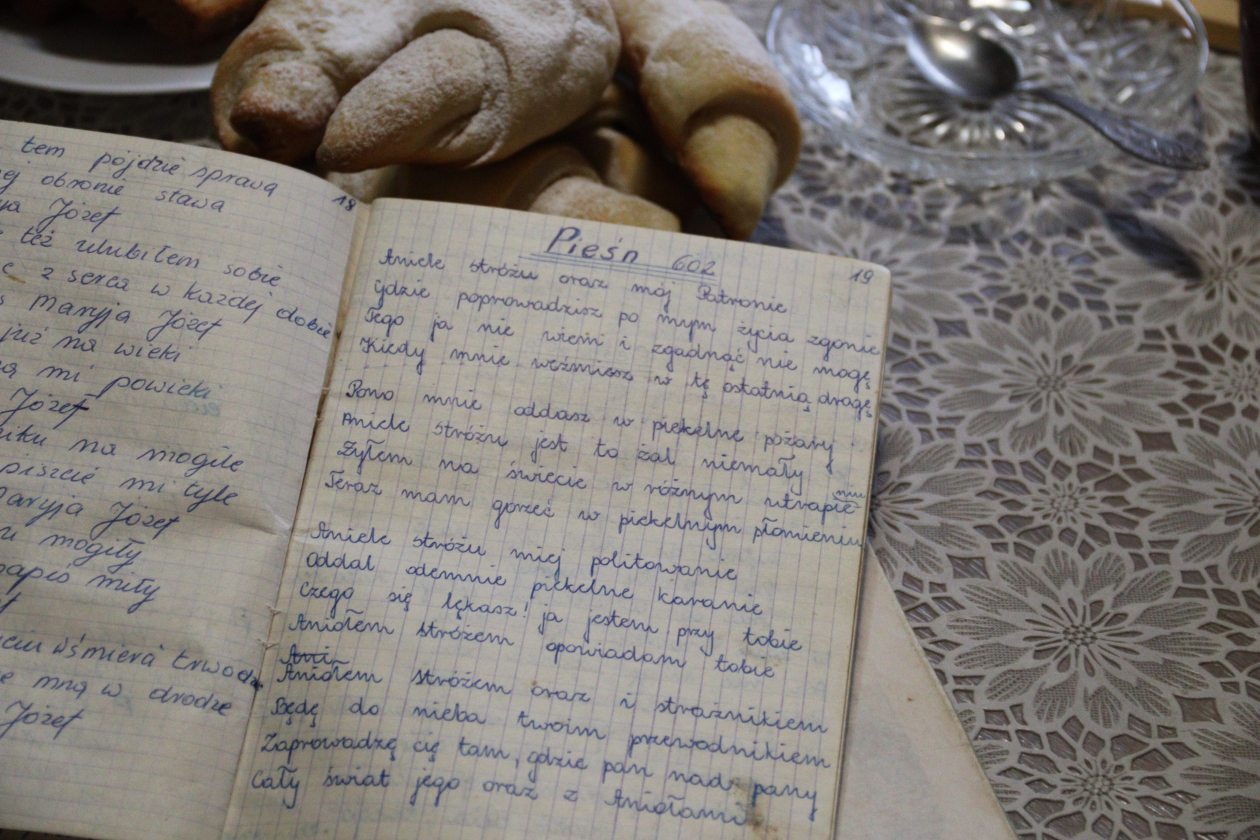 tem pójdzie sprawą
obronie stawa
Józef
też ulubiłem sobie
z serca w każdej dobie
Maryja Józef
już na wieki
mi powieki
Józef
na mogile
piszcie mi tyle
Maryja Józef
mogiły
napis miły
trwodze
mną w drodze
Józef
18
Pieśń 602
19
Aniele stróżu oraz mój Patronie
gdzie poprowadzisz po mym życia zgonie
Tego ja nie wiem i zgadnąć nie mogę
Kiedy mnie weźmiesz w tę ostatnią drogę
Pono mnie oddasz w piekelne pożary
Aniele stróżu jest to żal niemały
Żyłem na świecie w różnym utrapieniu
Teraz mam gorzeć w piekelnym płomieniu
Aniele stróżu miej politowanie
Oddal odemnie piekelne karanie
Czego się lękasz! ja jestem przy tobie
Aniołem stróżem opowiadam tobie
Ani
Aniołem stróżem oraz i strażnikiem
Będę do nieba twoim przewodnikiem
Zaprowadzę cię tam, gdzie pan nad pany
Cały świat jego oraz z Aniołami